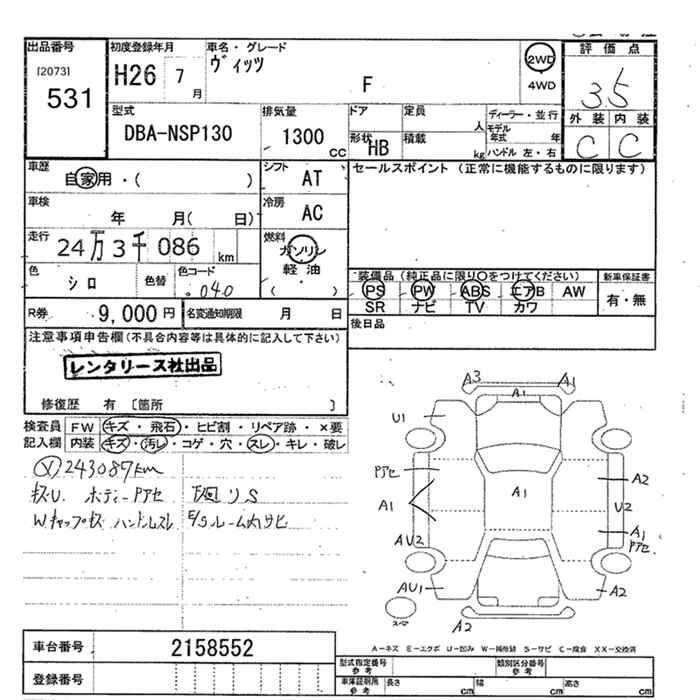 出品番号
[2073]
531
初度登録年月
H26 7 月
車名・グレード
ヴィッツ
F
2WD
4WD
評価点
3.5
外装 内装
C C
型式
DBA-NSP130
排気量
1300
CC
ドア
定員
人
形状
HB
積載
kg
ディーラー・並行
モデル年式 年
ハンドル 左・右
車歴
自家用・( )
シフト
AT
セールスポイント (正常に機能するものに限ります)
車検
年 月( 日)
冷房
AC
走行
24万3千086 km
燃料
ガソリン
軽油
( ・ )
色
シロ
色替
色コード
040
装備品 (純正品に限り○をつけてください)
PS PW ABS エアB AW
SR ナビ TV カワ
新車保証書
有・無
R券
9,000 円
名変通知期限
月 日
後日品
注意事項申告欄 (不具合内容等は具体的に記入して下さい)
レンタリース社出品
修復歴 有 〔箇所 〕
検査員 FW キズ・飛石・ヒビ割・リペア跡・×要
記入欄 内装 キズ・汚レ・コゲ・穴・スレ・キレ・破レ
243087km
キズU. ボディーPアセ 下回リS
Wキャップキズ ハンドルスレ E/gルーム内サビ
A3
A1
A1
U1
Pアセ
A1
A1
A2
U2
A1
Pアセ
AU2
AU1
A2
スマ
A2
A-キズ E-エクボ U-凹み W-補修跡 S-サビ C-腐食 XX-交換済
車台番号
2158552
登録番号
型式指定番号
参考
類別区分番号
参考
車庫証明用
参考
長さ cm
幅 cm
高さ cm